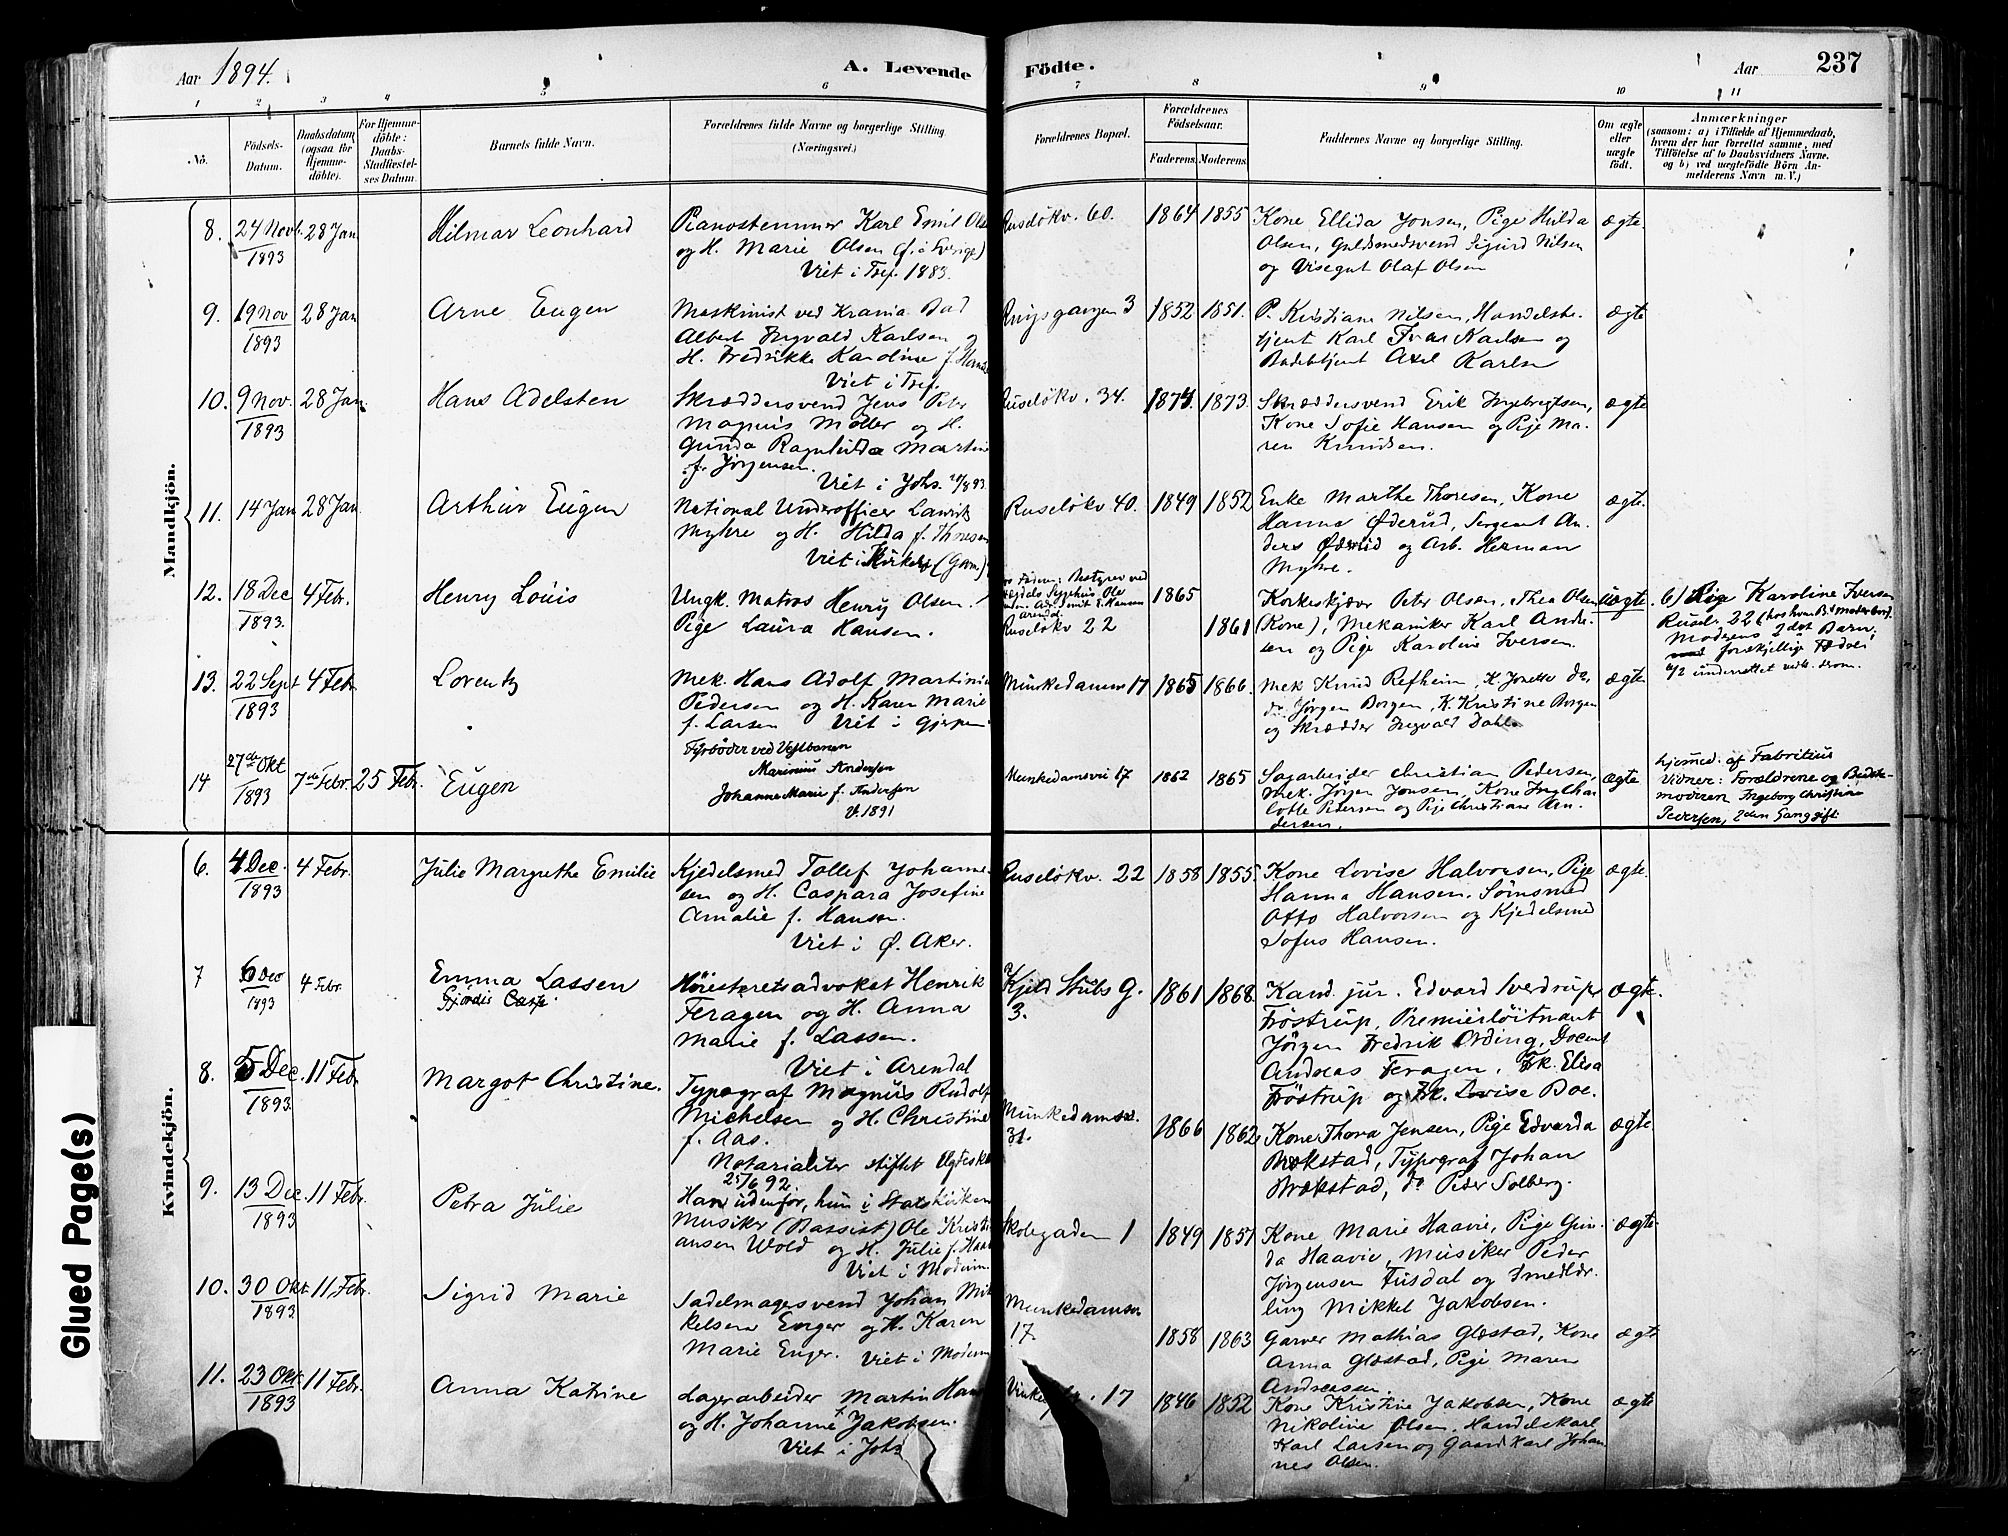 Aar 1894.
A. Levende
Födte.
Aar
237
1 2 3 4 5 6 7 8 9 10 11
No.
Födsels-Datum.
Daabsdatum (ogsaa for Hjemmedöbte).
For Hjemmedöbte: Daabs-Stadfæstelses Datum.
Barnets fulde Navn.
Forældrenes fulde Navne og borgerlige Stilling.
(Næringsvei.)
Forældrenes Bopæl.
Forældrenes Födselsaar.
Faderens. Moderens.
Faddernes Navne og borgerlige Stilling.
Om ægte eller uægte födt.
Anmærkninger
(saasom: a) i Tilfælde af Hjemmedaab,
hvem der har forrettet samme, med
Tilföielse af to Daabsvidners Navne.
og b) ved uægtefödte Börn Anmelderens Navn m. V.)
Mandkjön.
8. 24 Nov. 1893 28 Jan. Hilmar Leonhard
Pianostemmer Karl Emil Olsen
og H. Marie Olsen (f. i Sverige)
Viet i Tref. 1883.
Ruselökv. 60. 1864 1855
Kone Ellida Jonsen, Pige Hulda
Olsen, Guldsmedsvend Sigurd Nilsen
og Visegut Olaf Olsen
ægte.
9. 19 Nov 1893 28 Jan Arne Eugen
Maskinist ved Krania Bad
Albert Ingvald Karlsen og
H. Fredrikke Karoline f.
Viet i Tref.
Ringsgangen 3 1852 1851.
P. Kristiane Nilsen, Handelsbetjent
Karl Karlsen og
Badebtjent Axel Karlsen
ægte
10. 9 Nov. 1893 28 Jan. Hans Adelsten
Skræddersvend Jens Peter
Magnus Møller og H.
Gunda Ragnhilda Martine
f. Jørgensen.
Viet i Johs.
Ruselökv. 34. 1874. 1873.
Skræddersvend Erik Ingebregtsen,
Kone Sofie Hansen og Pige Maren
Knudsen.
ægte
11. 14 Jan 28 Jan. Arthur Eugen
National Underofficer Laurits
Myhre og H. Hilda f. Thoresen
Viet i (Gam.)
Ruselökv 40. 1849 1852
Enke Marthe Thoresen, Kone
Hanna Øderud, Sergeant Anders
Øderud og Arb. Herman
Myhre.
ægte.
12. 18 Dec 1893. 4 Febr. Henry Louis
Ungk. Matros Henry Olsen.
Pige Laura Hansen.
Ruselökv 22
1865 1861
Korkeskjær Peter Olsen, Thea Olsen
(Kone), Mekaniker Karl Andersen
og Pige Karoline Iversen.
uægte.
b) Pige Karoline Iversen
Rusel. 22 (hos hvem B. & Moder bor).
Moderens 2det Barn;
forskjellige Fædre;
underrettet vedk. drom.
13. 22 Sept 1893 4 Febr. Lorentz
Mek. Hans Adolf Martinius
Pedersen og H. Karen Marie
f. Larsen Viet i Gjerpen
Munkedamsv 17 1865 1866.
Mek Knud Refheim, H. Jonette do,
do. Jörgen Borgen, K. Kristine Borgen
og Skrædder Ingvald Dahl.
ægte
14 27de Okt 1893 7de Febr. 25 Febr. Eugen
Fyrböder ved Vestbanen
Marinius Andersen
Johanne Marie f. Andersen
V. 1891
Munkedamsvei 17 1862 1865
Sagarbeider Christian Pedersen,
Mek. Jörgen Jonsen, Kone Ing Charlotte
Pedersen og Pige Christiane Andersen.
ægte
hjemed. af Fabritius
Vidner: Forældrene og Bedstemoderen
Ingeborg Christine
Pedersen, 2den Gang gift.
Kvindekjön.
6. 4 Dec. 1893 4 Febr. Julie Margrethe Emilie
Kjedelsmed Tollef Johannesen
og H. Caspara Josefine
Amalie f. Hansen.
Viet i Ø. Aker.
Ruselökv. 22 1858 1855.
Kone Lovise Halvorsen, Pige
Hanna Hansen, Sömsmed
Otto Halvorsen og Kjedelsmed
Sofus Hansen.
ægte.
7 6 Dec 1893 4 Febr. Emma Lassen
Gjördis
Höiesteretsadvokat Henrik
Feragen og H. Anna
Marie f. Lassen.
Viet i Arendal
Kjeld Stubs G. 3. 1861 1868.
Kand. jur. Edvard Sverdrup
Fröstrup, Premierlöitnant
Jörgen Fredrik Ording, Docent
Andreas Feragen, Frk. Elisa
Fröstrup og Frk. Lovise Boe.
ægte.
8. 5 Dec. 1893. 11 Febr. Margot Christine.
Typograf Magnus Rudolf
Michelsen og H. Christine
f. Aas.
Notarialiter stiftet Ægtesk.
25/6 92.
Han udenfor, hun i Statskirken
Munkedamsv. 31. 1866 1862
Kone Thora Jensen, Pige Edvarda
Brækstad, Typograf Johan
Brækstad, do Peder Solberg.
ægte.
9. 13 Dec 1893 11 Febr. Petra Julie
Musiker (Bassist) Ole Kristiansen
Wold og H. Julie f. Haavie
Viet i Modum
Skolegaden 1 1849 1857
Kone Marie Haavie, Pige Gunda
Haavie, Musiker Peder
Jörgensen Fusdal og Smedlærling
Mikkel Jakobsen.
ægte
10. 30 Okt. 1893 11 Febr. Sigrid Marie
Sadelmagersvend Johan Mikkelsen
Enger og H. Karen
Marie Enger. Viet i Modum
Munkedamsv 17. 1858 1863
Garver Mathias Glæstad, Kone
Anna Glæstad, Pige Maren
Andreassen.
ægte
11. 23 Okt. 1893 11 Febr. Anna Katrine
Lagerarbeider Martin
og H. Johanne f. Jakobsen.
Viet i Johs
17 1846 1852
Kone Kristine Jakobsen, Kone
Nikoline Olsen, Handelskarl
Karl Larsen og Gaardkarl Johannes
Olsen.
ægte
Glued Page(s)